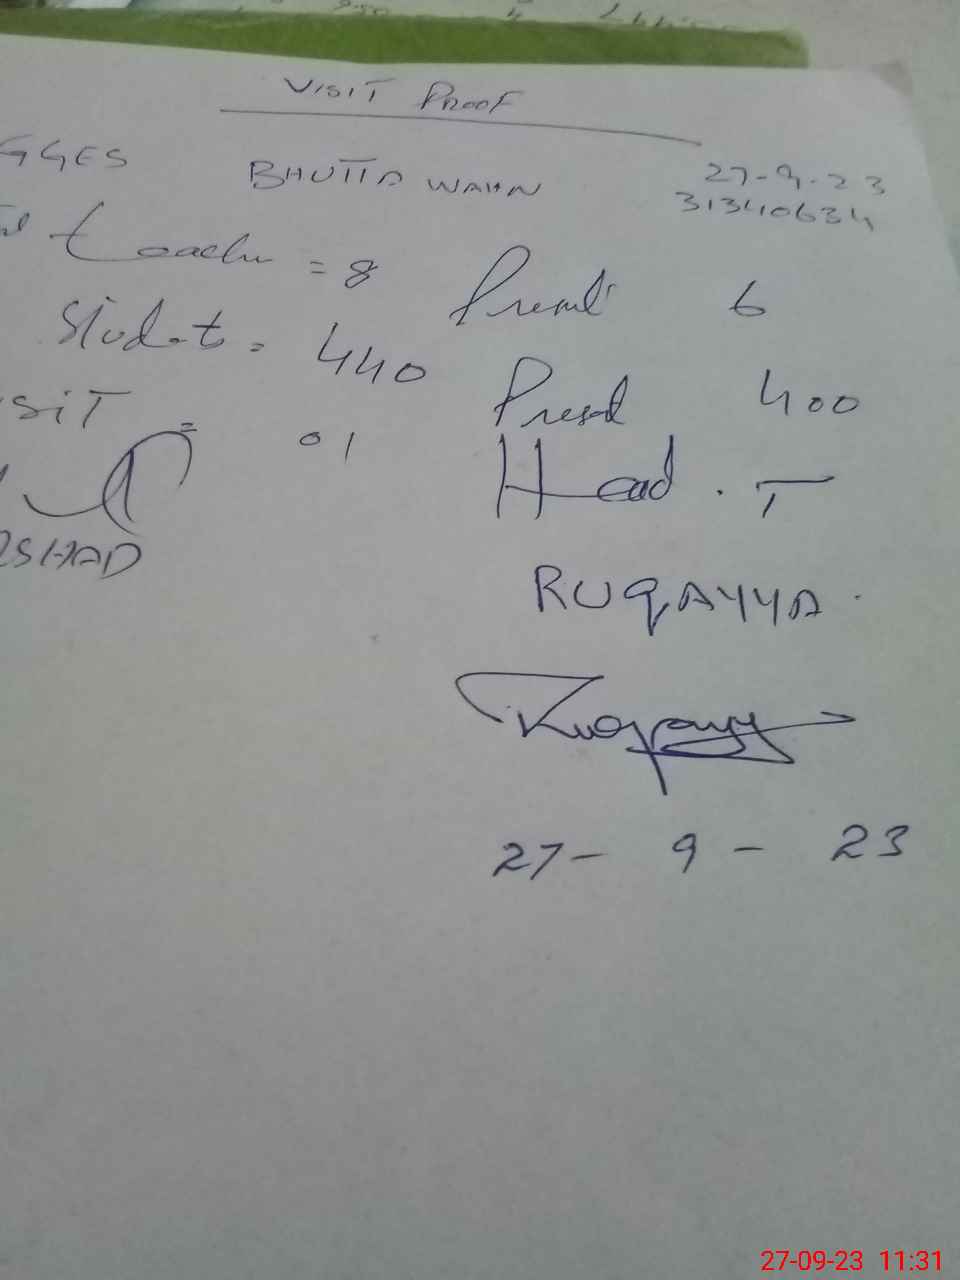 VISIT PROOF
GGES BHUTTA WAHN 27-9-23
31340634
teacher = 8 Present 6
Student = 440 Present 400
SIT = 01 Head. T
SHAD
RUQAYYA.
Ruqayy
27-9-23
27-09-23 11:31